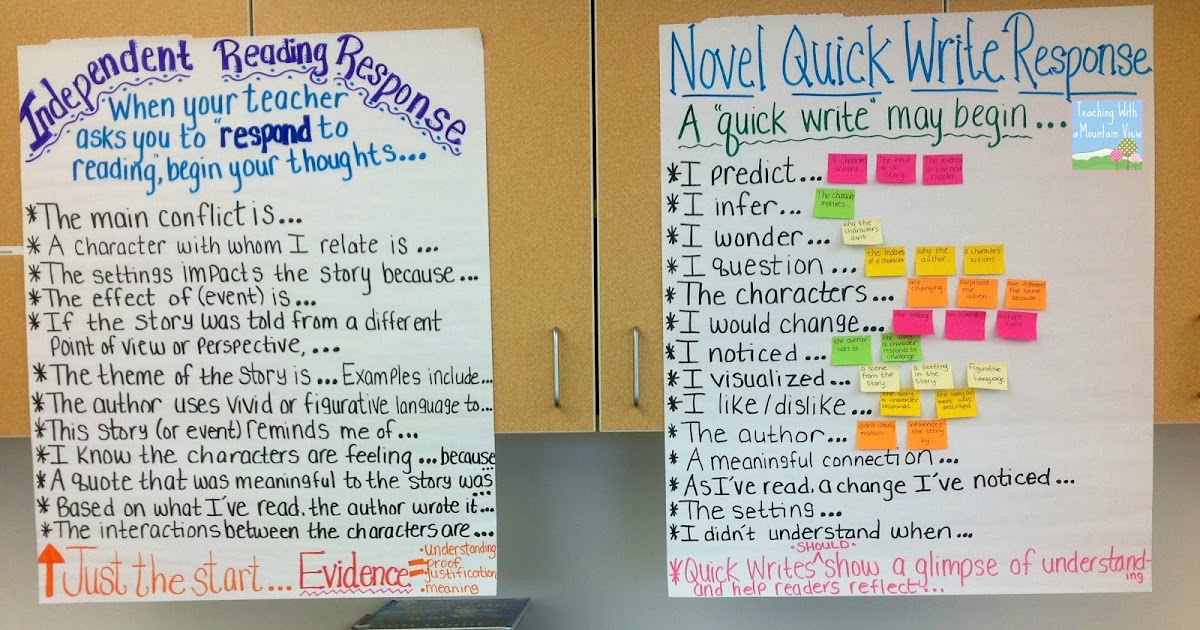 Independent Reading Response
When your teacher
asks you to "respond to
reading", begin your thoughts...
*The main conflict is...
*A character with whom I relate is ...
*The settings impacts the story because...
*The effect of (event) is...
*If the story was told from a different
Point of view or perspective, ...
*The theme of the story is ... Examples include...
*The author uses vivid or figurative language to...
*This story (or event) reminds me of...
*I know the characters are feeling ... because
*A quote that was meaningful to the story was
...
*Based on what I've read, the author wrote it...
*The interactions between the characters are...
Just the start... Evidence =
•understanding
•proof
•justification
•meaning
Novel Quick Write Response
A "quick write" may begin...
Teaching With
a Mountain View
*I predict...
A character
actions
The end
of a
story
The events
in the next
chapter
*I infer...
The character
motives
*I wonder...
why the
characters
don't
*I question ...
the motives
of a character
why the
author
a character's
actions
*The characters...
are
changing
surprised
me
when
are different
the same
because
*I would change...
the setting
an event
*I noticed...
the author
uses to
a character
responds to
challenge
*I visualized...
a scene
from the
story
a setting
in the
story
Figurative
Language
*I like/dislike...
the way
a character
responds
the way an
event was
described
*The author...
didn't clearly
explain
influences
the story
by...
*A meaningful connection...
*As I've read, a change I've noticed...
*The setting...
*I didn't understand when...
*Quick Writes SHOULD show a glimpse of understand-
ing
and help readers reflect!...